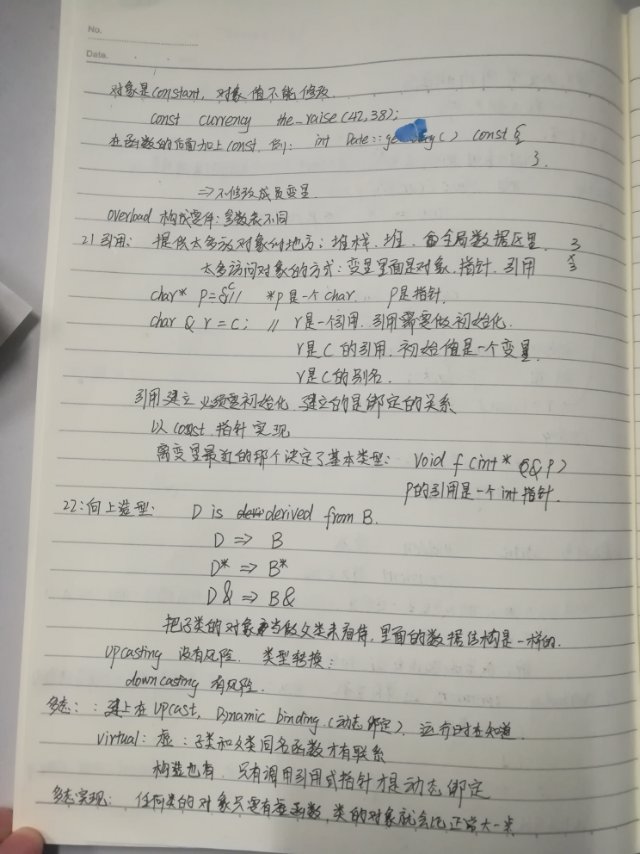 No.
Date.
对象是constant, 对象值不能修改
const currency the_raise(42,38);
在函数的后面加上const. 例: int Date::ge g() const {
}.
⇒不修改成员变量
overload 构成条件: 参数表不同
21 引用: 提供太多放对象的地方: 堆栈、堆、全局数据区里. 3
太多访问对象的方式: 变量里面是对象、指针、引用 × 3
char* p=&c // *p是一个char. p是指针.
char & r = c; // r是一个引用. 引用需要做初始化.
r是c的引用. 初始值是一个变量.
r是c的别名.
引用建立必须要初始化. 建立的是绑定的关系
以const 指针实现
离变量最近的那个决定了基本类型: void f(int* & p)
p的引用是一个int指针.
22: 向上造型: D is derived from B.
D ⇒ B
D* ⇒ B*
D& ⇒ B&
把子类的对象当做父类来看待, 里面的数据结构是一样的.
upcasting 没有风险. 类型转换:
downcasting 有风险.
多态: : 建立在upcast, Dynamic binding.(动态绑定), 运行时才知道.
virtual: 虚: 子类和父类同名函数才有联系
构造也有. 只有调用引用或指针才是动态绑定
多态实现: 任何类的对象只要有虚函数, 类的对象就会比正常大一些